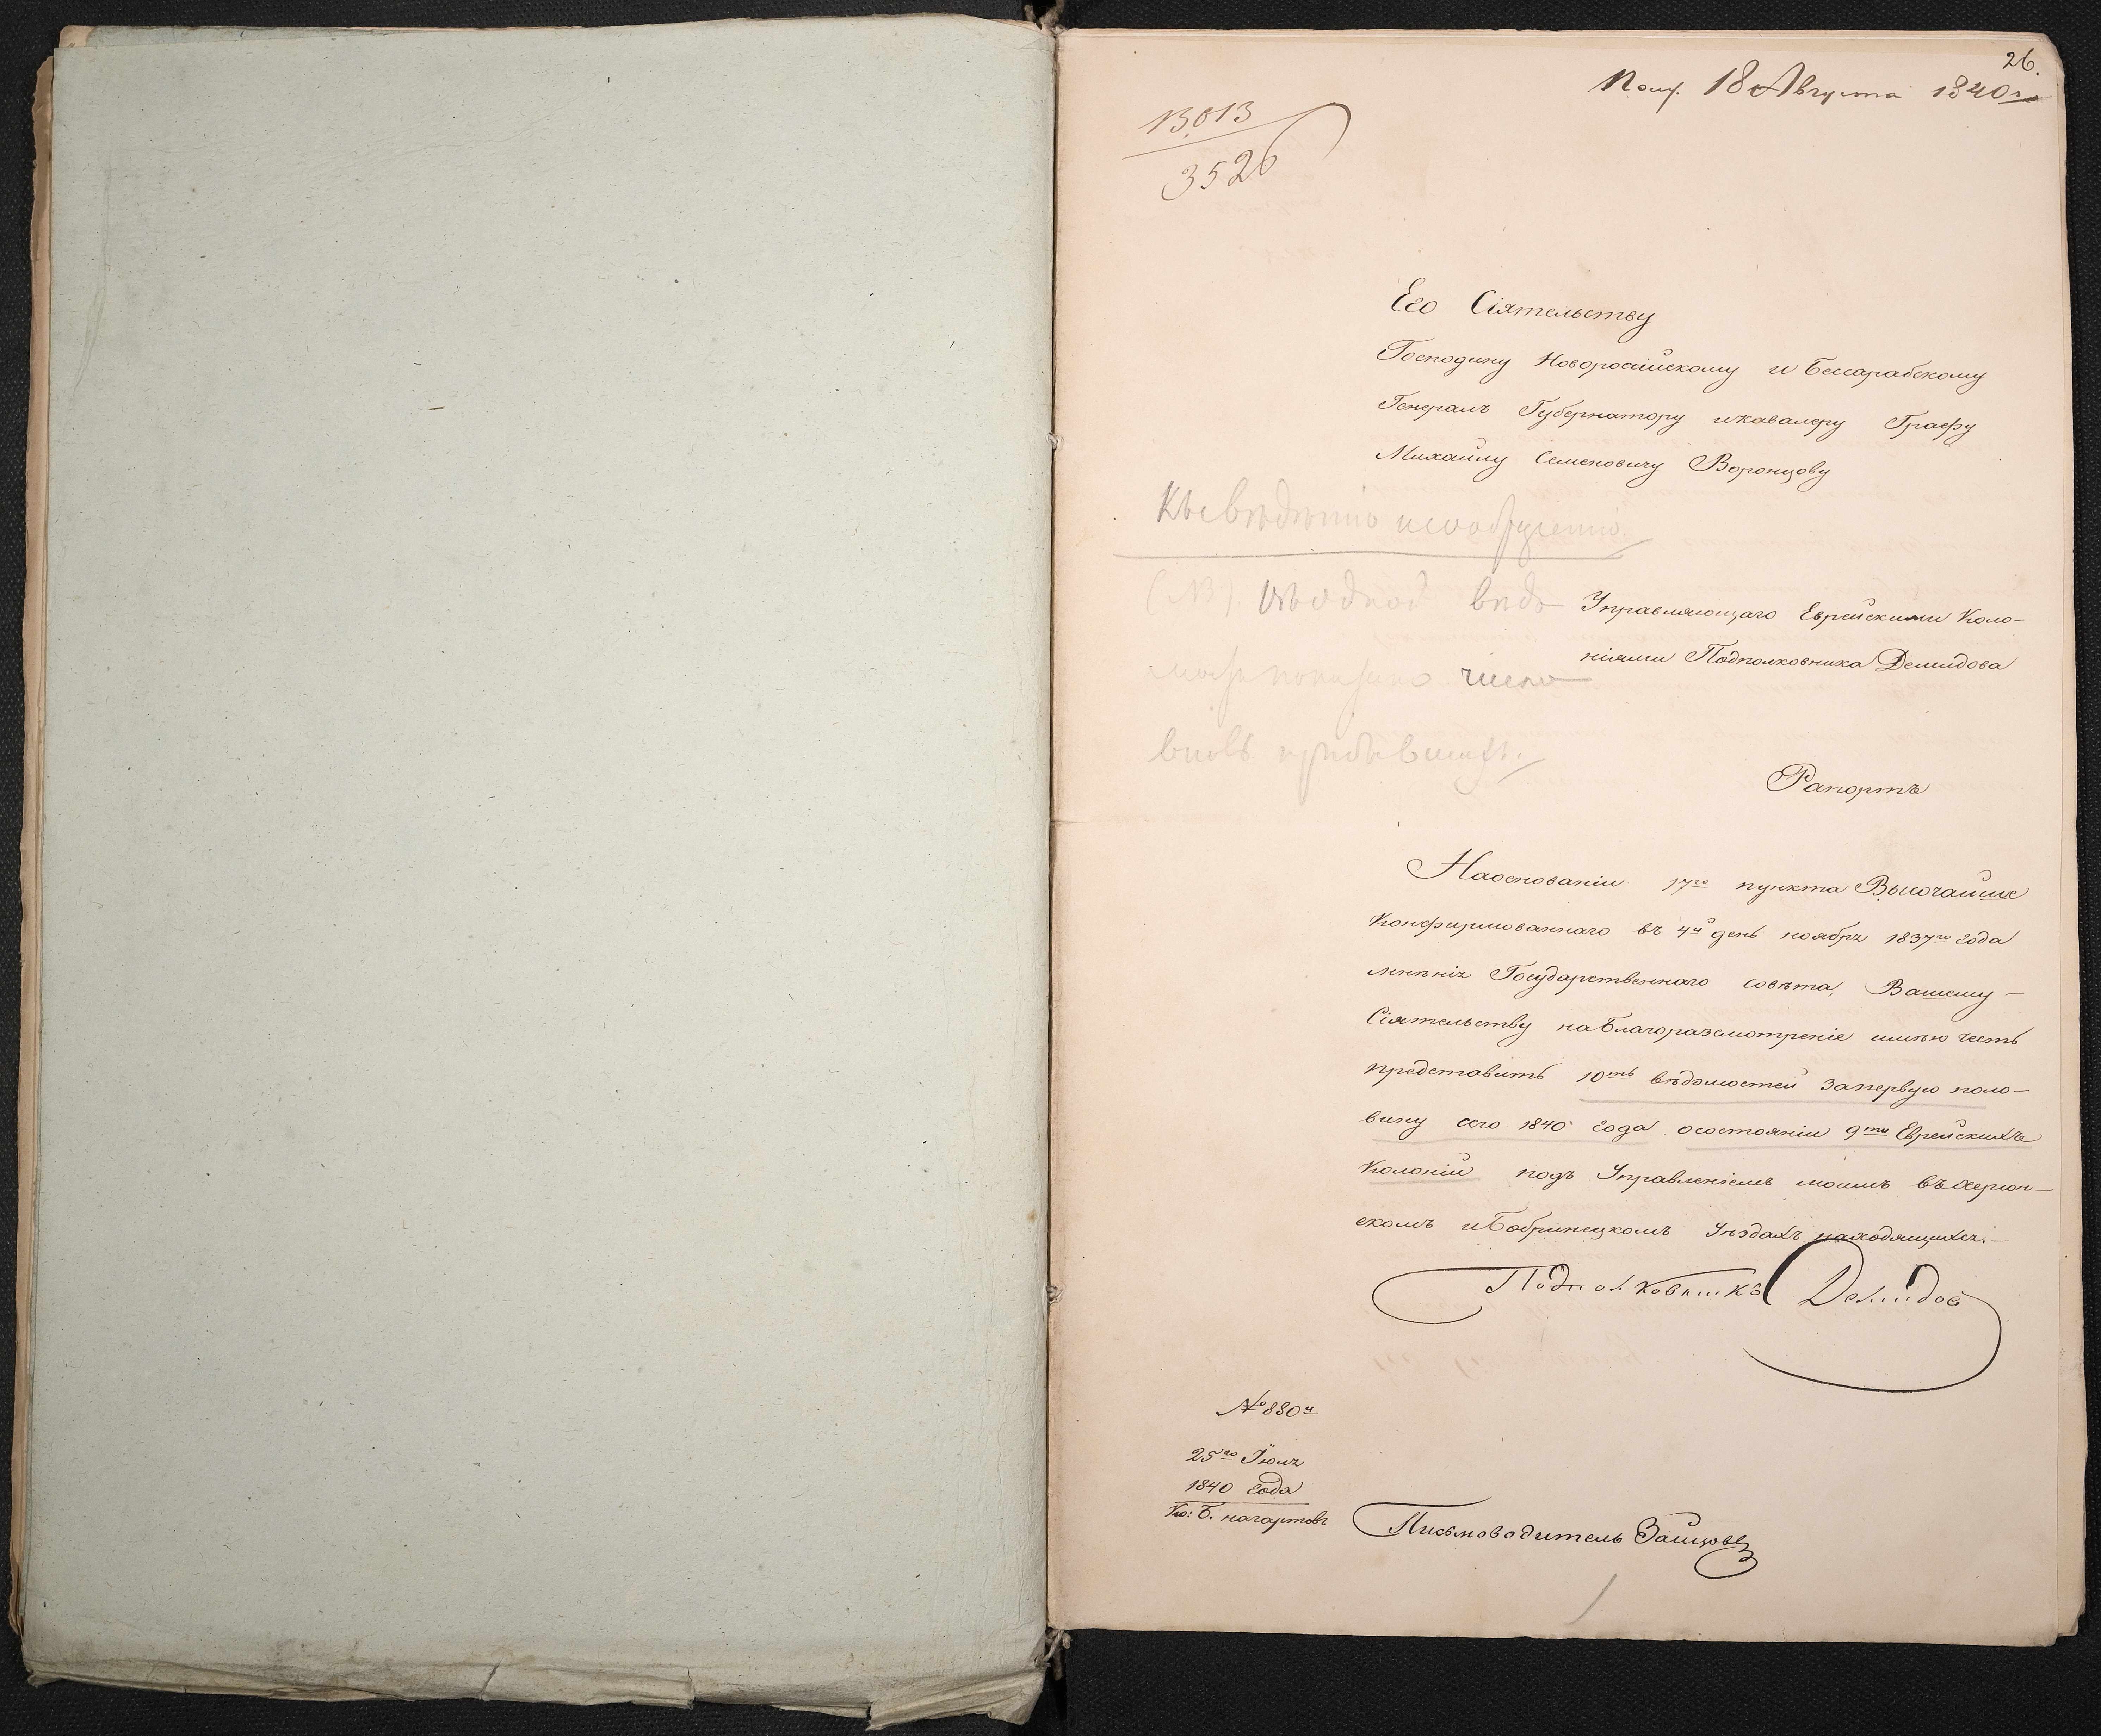 26.
Полу. 18 Августа 1840 г.
13,013
3526
Его Сіятельству
Господину Новоросійскому и Бессарабскому
Генералъ Губернатору икавалеру Графу
Михаилу Семеновичу Воронцову
Къ свѣдѣнію исоображенію.
(NB) въодной видѣ
показано число
вновь прибывшихъ.
Управляющаго Еврейскими Коло-
ніями Подполковника Демидова
Рапортъ
Наоснованіи 17го пункта Высочайше
Конфирмованнаго въ 4й день ноября 1837го года
мнѣнія Государственнаго совѣта, Вашему
Сіятельству наблагоразсмотреніе имѣю честь
представить 10ть вѣдомостей запервую поло-
вину сего 1840 года осостояніи 9ти Еврейскихъ
Колоній подъ Управленіемъ моимъ въ Херсон-
скомъ иБобринецкомъ Уѣздахъ находящихся.
Подполковникъ Демидов
№ 880й
25го Іюля
1840 года
Ко: Б. нагартовъ
Письмоводитель Зайцовъ